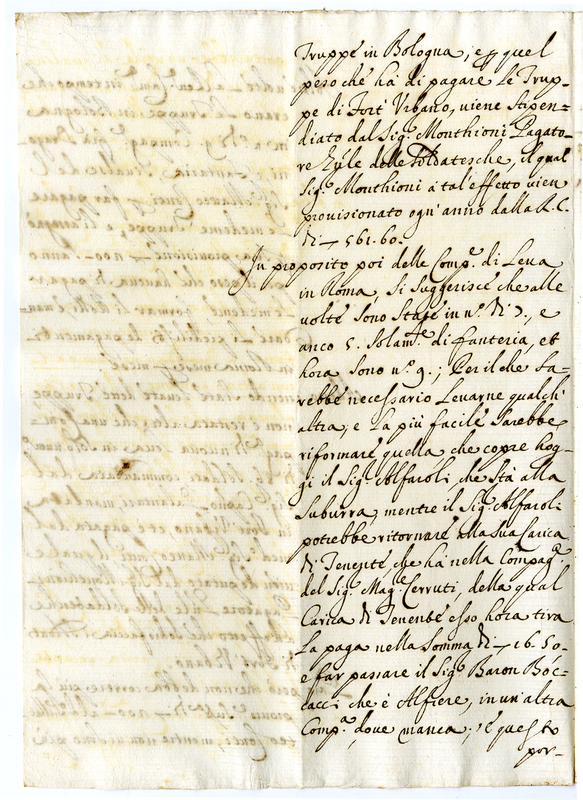 Truppe in Bologna; e p quel
peso che hà di pagare le Trup-
pe di Fort' Vrbano, uiene stipen-
diato dal Sig.r Monthioni Pagato-
re delle Soldatesche, il qual
Sig.r Monthioni à tal'effetto vien
provisionato ogn'anno dalla R. C.
di 561.60.
In proposito poi delle Comp.e di Leua
in Roma, si suggerisce che alle
uolte sono state in n.o di 7., e
anco 5. solam.te di fanteria, et
hora sono n.o 9.; Per il che sa-
rebbe necessario leuarne qualch'
altra, e la più facile sarebbe
riformare quella che copre hog-
gi il Sig.r Alfaroli, che stà alla
Suburra, mentre il Sig.r Alfaroli
potrebbe ritornare alla sua Carica
di Tenente, che hà nella Compag.a
del Sig.r Mag.re Cerruti, della qual
Carica di Tenente esso hora tira
la paga nella somma di 16.50-
e far passare il Sig.r Baron Boc-
cacci che è Alfiere, in un'altra
Comp.a doue manca; e questo
por-